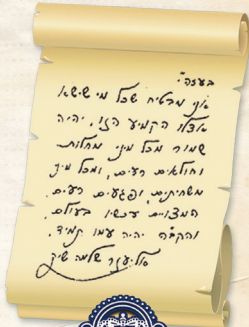 בעזה"י
אני מבטיח שכל מי שישא
אצלו הקמיע הזו, יהיה
שמור מכל מיני מחלות
וחולאים רעים, ומכל מין
משחיתים, ופגעים רעים,
המצויים עכשיו בעולם,
והקב"ה יהיה עמו תמיד.
אליעזר שלמה שיק